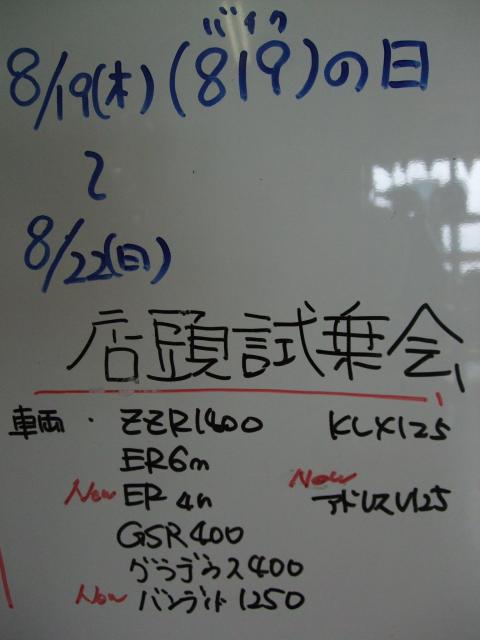 バイク
8/19(木)(819)の日
〜
8/22(日)
店頭試乗会!
車両・ZZR1400 KLX125
ER6n
New ER4n New アドレスV125
GSR400
グラデウス400
New バンディト1250